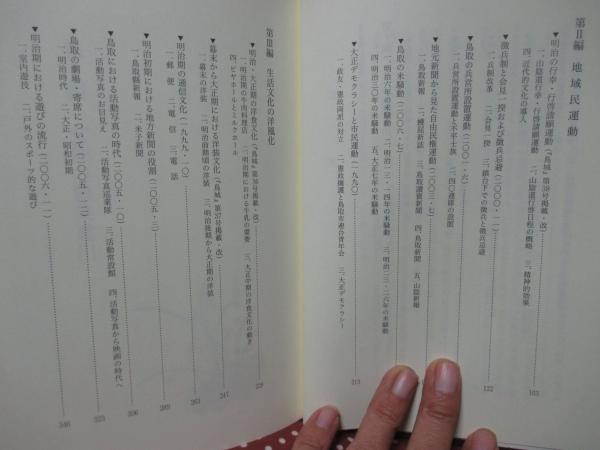 第Ⅱ編 地域民運動
▼明治の行幸・行啓請願運動(『鳥城』第38号掲載・改)
一、山陰道行幸・行啓請願 二、山陰道行啓日程の概略 三、精神的効果
四、近代的文化の導入
103
▼徴兵制と会見一揆および徴兵忌避(二〇〇六・八)
一、兵制改革 二、会見一揆 三、鎮台下での徴兵と徴兵忌避
122
▼鳥取の兵営所設置運動(二〇〇一・六)
一、兵営所設置運動と不平士族 二、40連隊の設置
▼地元新聞から見た自由民権運動(二〇〇三・七)
一、鳥取新報 二、種屋新誌 三、鳥取讀賣新聞 四、鳥取新聞 五、山陰新報
▼鳥取の米騒動(二〇〇六・七)
一、明治六年の米騒動 二、明治一三・一四年の米騒動 三、明治二三・二六年の米騒動
四、明治三〇年の米騒動 五、大正七年の米騒動
▼大正デモクラシーと市民運動(一九九〇)
一、政友・憲政両派の対立 二、憲政擁護と鳥取市連合青年会 三、大正デモクラシー
213
第Ⅲ編 生活文化の洋風化
▼明治・大正期の洋食文化(『鳥城』第36号掲載・改)
一、明治期の牛肉料理店 二、明治期における牛乳の需要 三、大正中期の洋食文化の動き
四、ビヤホールとミルクホール
229
▼幕末から大正期における洋装文化(『鳥城』第37号掲載・改)
一、幕末の洋装 二、明治前期頃の洋装 三、明治後期から大正期の洋装
247
▼明治期の通信文化(一九九九・一〇)
一、郵便 二、電信 三、電話
263
▼明治初期における地方新聞の役割(二〇〇五・三)
一、鳥取縣新報 二、米子新聞
289
▼鳥取における活動写真の時代(二〇〇五・一〇)
一、活動写真のお目見え 二、活動写真巡業隊 三、活動常設館 四、活動写真から映画の時代へ
306
▼鳥取の劇場・寄席について(二〇〇五・一二)
一、明治時代 二、大正・昭和初期
325
▼明治期における遊びの流行(二〇〇六・一一)
一、室内遊技 二、戸外のスポーツ的な遊び
346